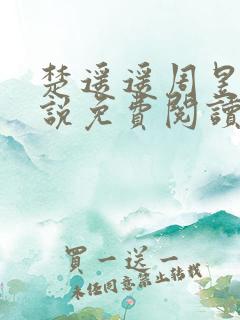 楚遥遥周昱
說免費閱讀
買一送一
未经同意禁止转载